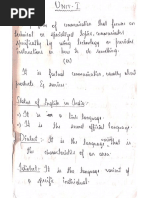 Unit - I
form of communication that focuses on
technical or specialized topics, communicates
specifically by using technology or provides
instructions on how to do something.
(or)
It is factual communication, usually about
products & services.
Status of English in India:-
→ It is a link language.
→ It is the second official language.
Dialect:- It is the language which is
the characteristics of an area.
Idiolect:- It is the language variant of
a specific individual.